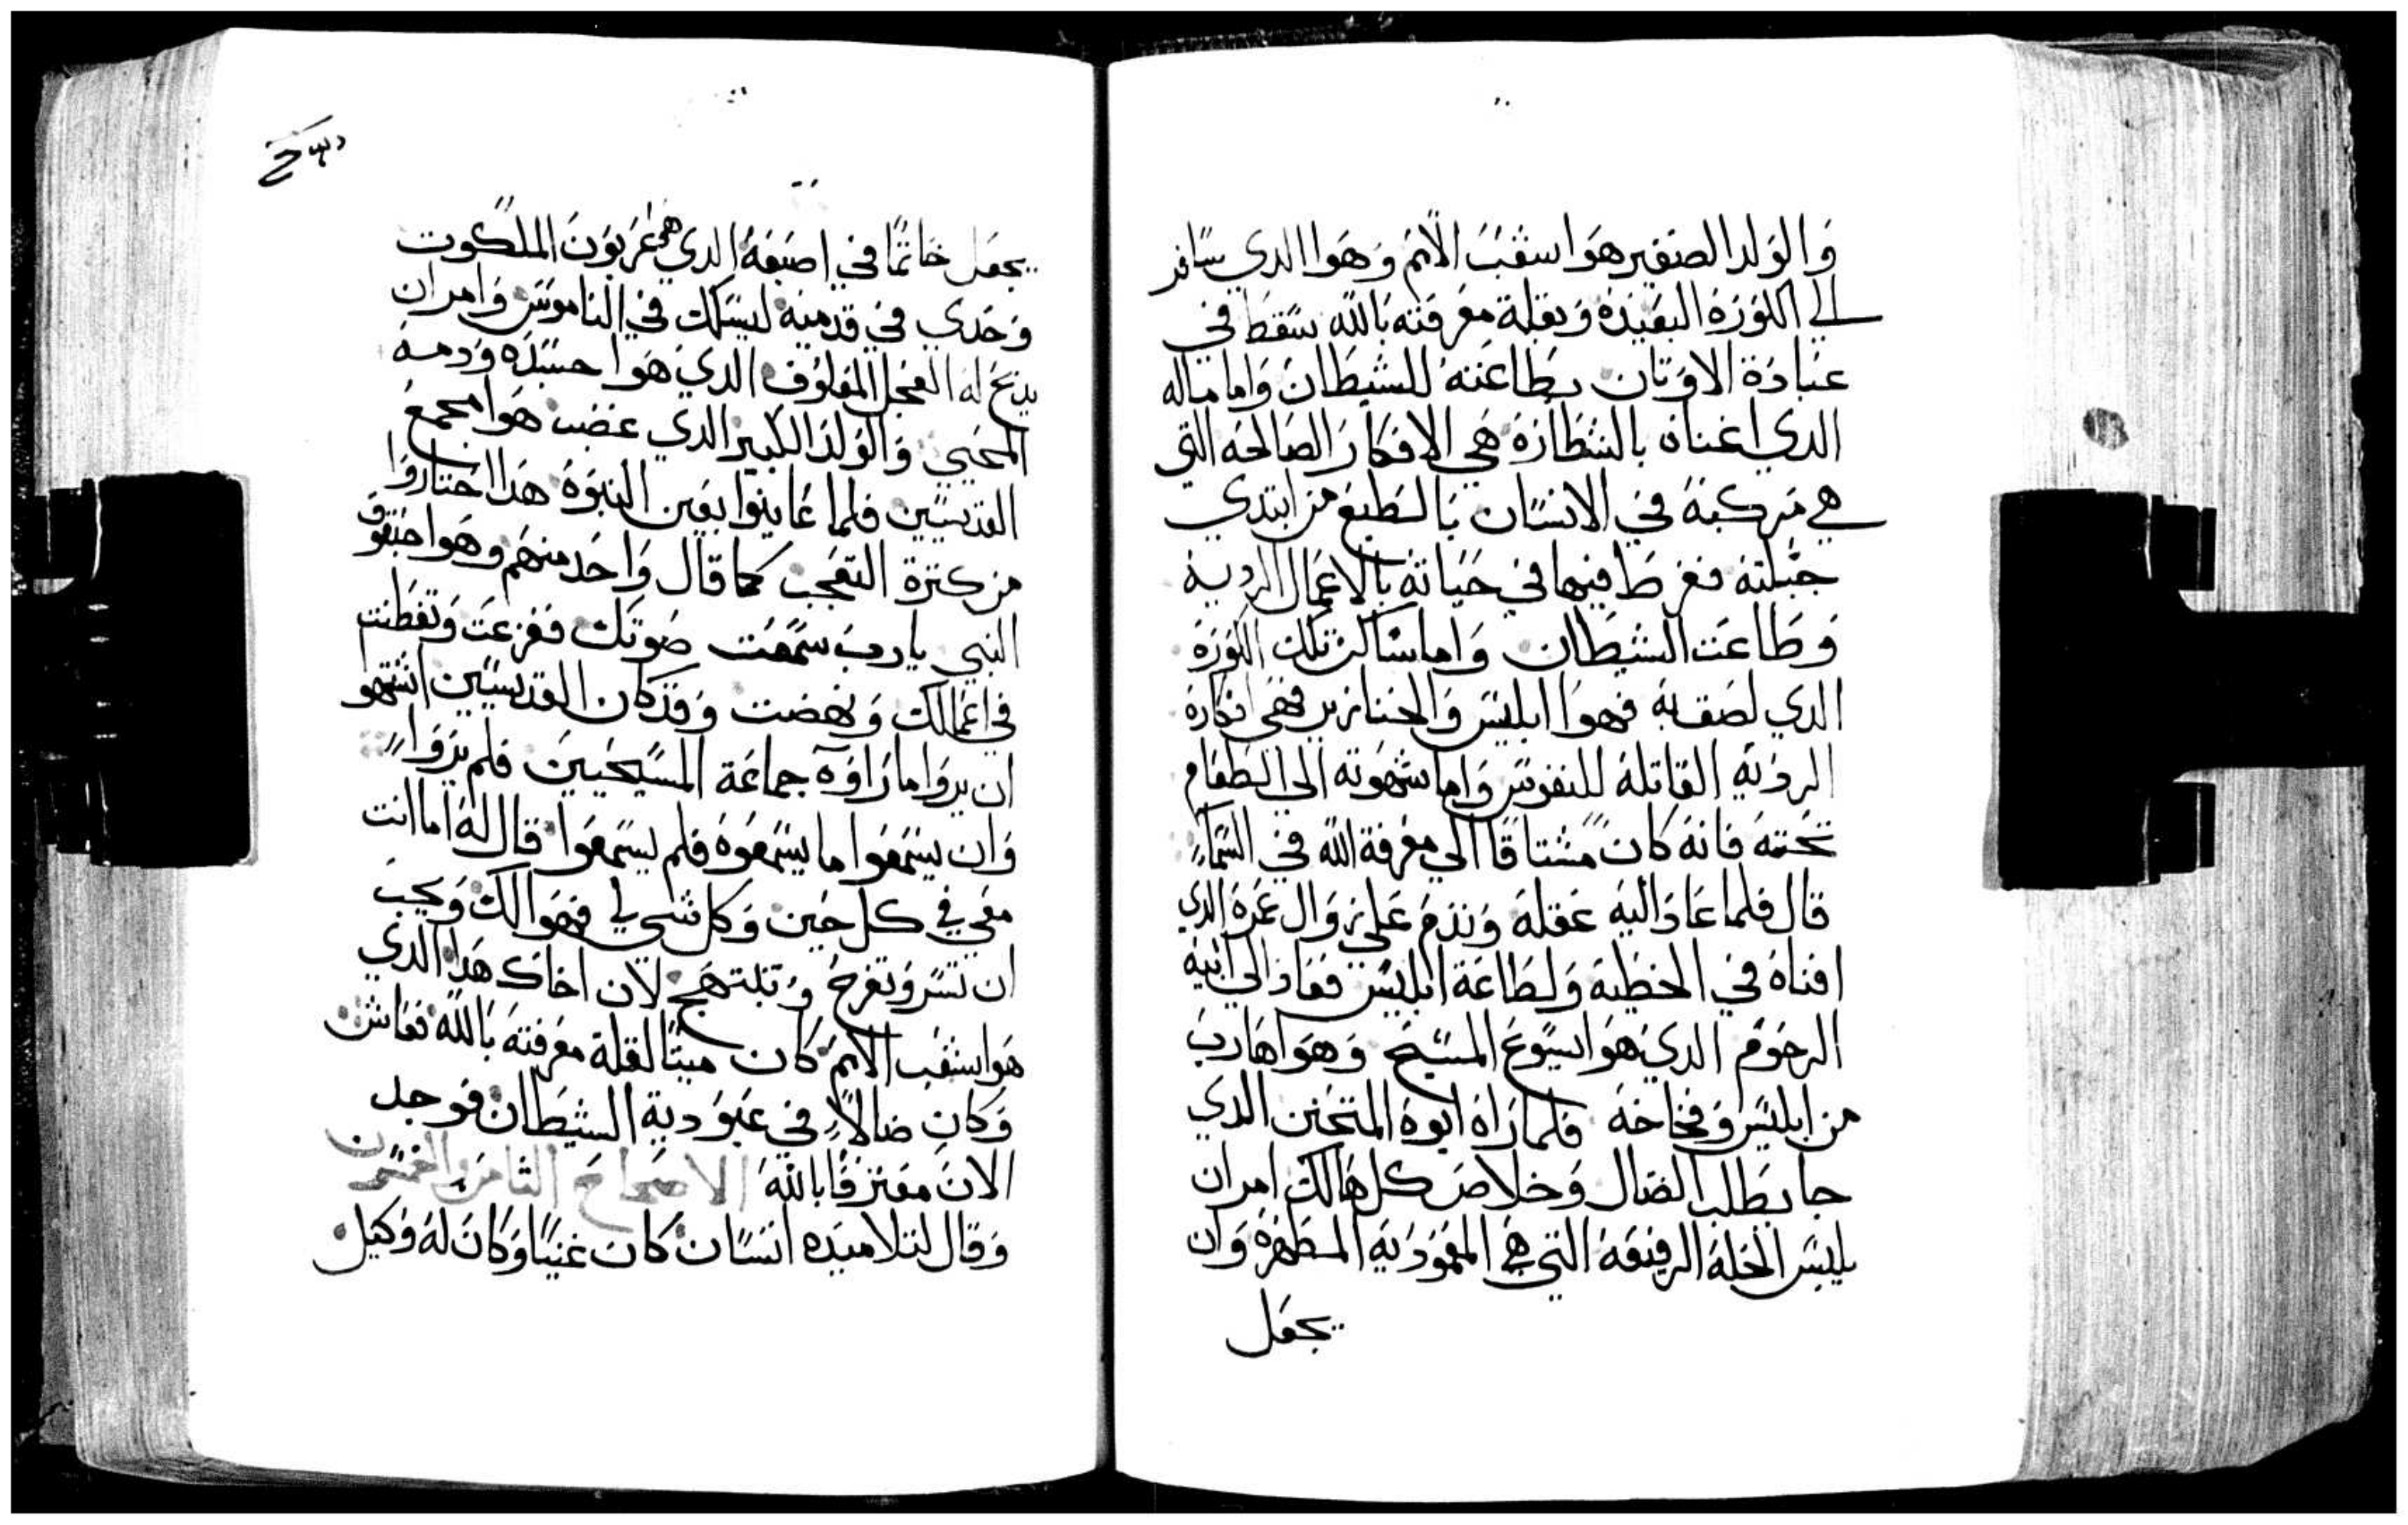 والولد الصغير هوا شعب الامم وهوا الدي سافر
الي الكورة البعيدة وبقلة معرفته بالله سقط في
عبادة الاوتان بطاعته للشيطان واما ماله
الدي افناه بالشطارة هي الافكار الصالحه التي
هي مركبة في الانسان بالطبع من ابتدي
جبلته ففرط فيها في حياته بالاعمال الرديه
وطاعت الشيطان واما ساكن تلك الكورة
الدي لصق به فهوا ابليس والخنازير فهي افكارة
الرديه القاتلة للنفوس واما شهوته الي الطعام
تحته فانه كان مشتاقا الي معرفة الله في السماء
قال فلما عاد اليه عقله وندم علي زوال عمره الدي
افناه في الخطيه ولطاعة ابليس فعاد الي ابيه
الرحوم الدي هوا يسوع المسيح وهوا هارب
من ابليس وفخاخه فلما راه ابوه المتحنن الدي
جا بطلب الضال وخلاص كل هالك امر ان
يلبس الحلة الرفيعة التي هي المعمودية المطهرة وان
يجعل
يجعل خاتما في اصبعه الدي هي عربون الملكوت
وحدي في قدميه ليسلك في الناموس وامر ان
يدبح له العجل المعلوف الدي هوا جسده ودمه
المحيي والولد الكبير الدي غضب هوا مجمع
القديسين فلما عاينوا بعين النبوة هدا احتاروا
من كترة التعجب كما قال واحد منهم وهوا حبقوق
النبي يا رب سمعت صوتك ففزعت وتفطنت
في اعمالك ونهضت وقد كان القديسين اشتهو
ان يروا ما راوه جماعة المسيحيين فلم يروا
وان يسمعوا ما يسمعوه فلم يسمعوا قال له اما انت
معي في كل حين وكل شي لي فهوا لك ويجب
ان تسر وتفرح وتبتهج لان اخاك هدا الدي
هوا شعب الامم كان ميتا لقلة معرفته بالله فعاش
وكان ضالا في عبودية الشيطان فوجد
الان معترفا بالله الاصحاح الثامن والخمسون
وقال لتلاميده انسان كان غنيا وكان له وكيل